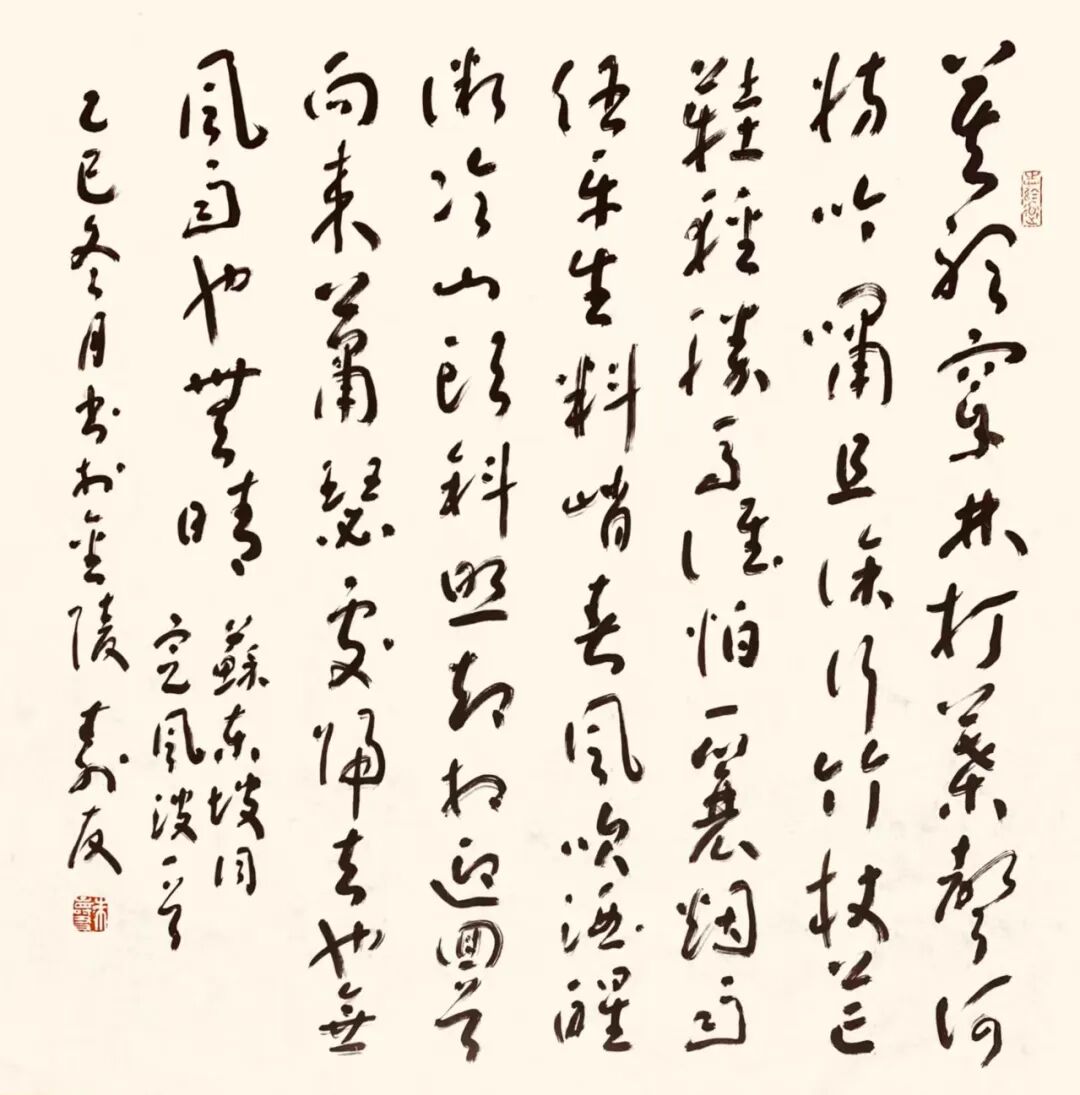 莫聽穿林打葉聲何
妨吟嘯且徐行竹杖芒
鞋輕勝馬誰怕一蓑烟雨
任平生料峭春風吹酒醒
微冷山頭斜照却相迎回首
向來蕭瑟處歸去也無
風雨也無晴
蘇東坡詞
定風波一首
乙巳冬月書於金陵壽友
朱壽友